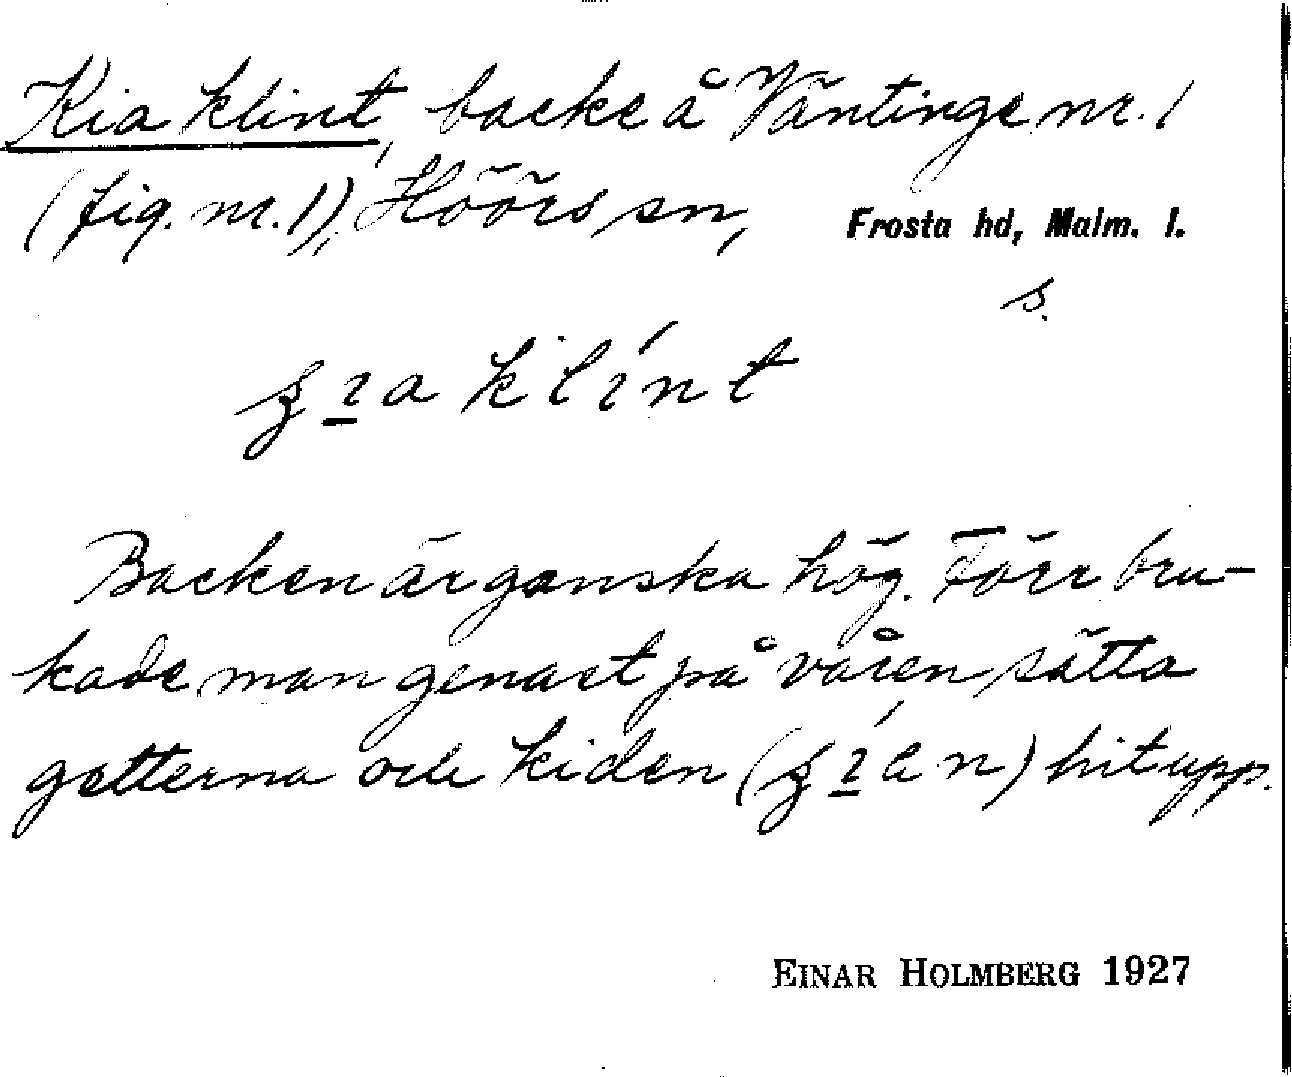 Kia klint, backe å Väntinge nr. 1
(fig. nr. 1), Höörs sn, Frosta hd, Malm. l.
s.
ʒɪa klínt
Backen är ganska hög. Förr bru-
kade man genast på våren sätta
getterna och kiden (ʒɪ́an) hit upp.
EINAR HOLMBERG 1927